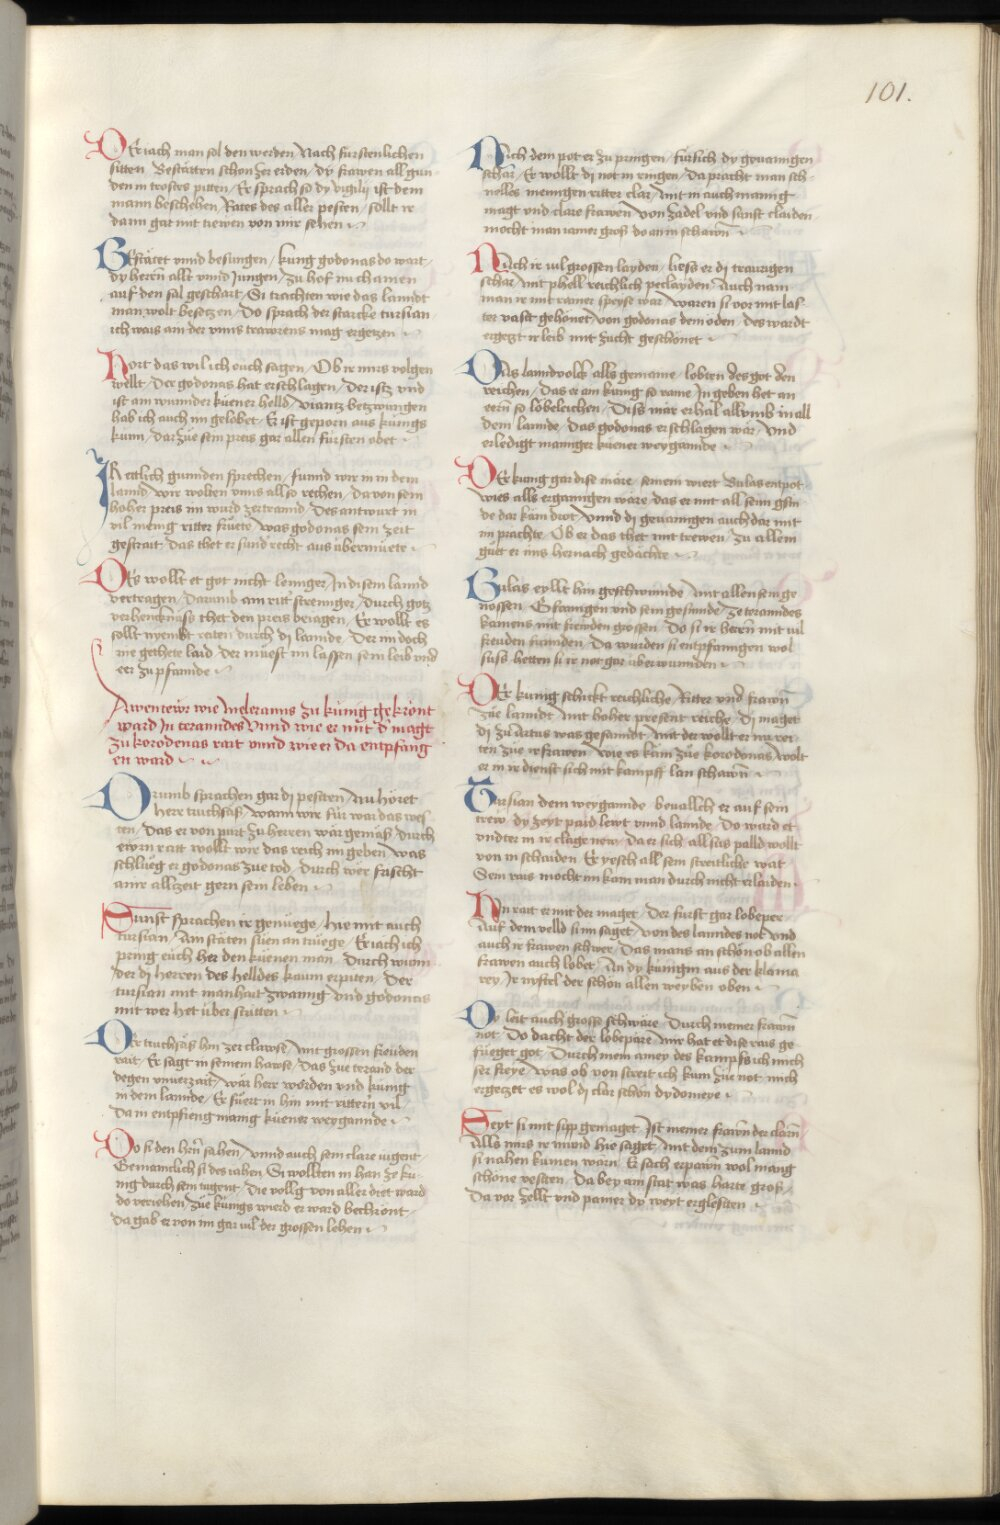 101.
Er iach man sol den werden / Nach furstenlichen
sitten / Bestätten schon zer erden / Dy frawen all gun-
den in trostes pitten / Er sprach so dy vigilij ist dem
mann beschehen / Rates des aller pesten / sollt ir
dann gar mit trewen von mir sehen
Gestätet vnnd besungen / kunig godonas do wart
dy herrn allt vnnd Jungen / zu hof in chamen
auf den sal geschart / Si trachten wie das lanndt
man wolt besetzen / Do sprach der starcke tursian
ich wais am der vnns trawrens mag ergetzen
Hort das wil ich euch sagen / Ob ir mirs volgen
wellt / Der godonas hat erschlagen / Der ist vnd
ist am wunnder küener helld / betzwungen
hab ich auch im gelobet / Er ist geporn aus kunigs
kunn / dar züe sein preis gar allen fürsten obet
Ir ettlich gunnden sprechen / funnd wir in in dem
lannd / wir wolten vnns all so rechen / da von sein
hoher preis im wurd zertrannd / Des antwurt in
vil menig ritter fruete / was godonas sein zeit
gestrait / das thet er sunder recht aus übermuete
Es wollt et got nicht lennger / In disem lannd
vertragen / Darumb am ritter strennger / Durch gotz
verhencknüss thet den preis beiagen / Er wollt es
sollt nyembt raten durch di lannde / Der im doch
nie gethete laid / der müest im lassen sein leib vnd
eer zu pfannde
Awentewr wie Meleranns zu kunig gekrönt
ward In teranndes Vnnd wie er mit der magt
zu korodenas rait vnnd wie er da entpfang
en ward
Orumb sprachen gar di pesten / Nu höret
herr truchsäss / wann wir für war das wes
ten / Das er von purt zu herren wär gemäss / durch
ewrn ratt wollt wir das reich im geben / was
schlüeg er godonas zue tod / durch wer frischt
amr allzeit gern sein leben
Sunst sprachen ir genüege / hie mit auch
tursian / Am stäten süen an trüege / Er iach ich
pring euch her den küenen man / durch wann
der di herren des helldes kaum erpiten / Der
tursian mit manhait zwanng / vnd godonas
mit wer het über stritten
Der truchsäss hin zer clawse / mit grossen freuden
rait / Er sagt in seinem hawse / Das zue terand der
degen vnuerzait / wär herr worden vnd kunig
in dem lannde / Er fuert in hin mit rittern vil
da in entpfieng manig küener weygannde
Do si den hern sahen / vnnd auch sein clare iugent
Gemainclich si des iahen / Si wollten in han ze ku-
nig durch sein tugent / Die vollig von aller diet ward
do veriehen / züe kunigs wierd er ward bechrönt
da gab er von im gar vil der grossen lehen
Nach dem pot er zu pringen / für sich dy geuanngen
schar / Er wollt di not in ringen / da pracht man sch-
nelles menngen ritter clar / mit in auch mannig
magt vnd clare frawen / von zadel vnd sunst claiden
mocht man iamer gross do an in schawn
Nach ir vil grossen layden / liess er di traurigen
schar / mit phell reichlich peclayden / Auch nam
man ir mit rainer speyse war / waren si vor mit las-
ter vast gehönet / von godonas dem öden / des wardt
ergetzt ir leib mit zucht geschönet
Das lanndvolck alls gemaine / lobten des got den
reichen / Das er am kunig so raine / In geben het an
eern so lobeleichen / Diss mär erhal allumb in all
dem lannde / das godonas erschlagen wär / vnd
erledigt mannger küener weygannde
Der kunig gar dise märe / seinem wiert Bulas enpot
wies alls erganngen wäre / das er mit all seim gsin
de dar käm drot / vnnd di geuanngen auch dar mit
im prachte / Ob er das thet mit trewen / zu allem
guet er ims hernach gedächte
Gulas eyllt hin geschwinnde / mit allen sein ge
nossen / Gfanngen vnd sein gesinnde / ze teranndes
kamens mit frewden grossen / Do si ir herrn mit vil
freuden funnden / Da wurden si entpfanngen wol
suss hetten si ir not gar überwunnden
Der kunig schickt reichliche / Ritter vnd frawn
züe lanndt / mit hoher present reiche / di maget
di zu Artus was gesanndt / mit der wollt er nu rei-
ten züe ir frawen / wie es käm züe korodonas / wolt
er in ir dienst sich mit kampff lan schawn
Tursian dem weygannde / beuallch er auf sein
trew / dy zeyt paid lewt vnnd lannde / Do ward et
vndter in ir clage new / Da er sich all sus palld wollt
von in schaiden / Er yesch all sein streitliche wat
Sein rais mocht im kain man durch nicht erlaiden
Hin rait er mit der maget / der fürst gar lobeper
Auf dem velld si im saget / von des lanndes not vnd
auch ir frawen schwer / Das mans an schön ob allen
frawen auch lobet / An dy kunigin aus der klama
rey / Ir nyftel der schön allen weyben oben
Dy leit auch grosse schwäre / Durch meiner frawn
not / Do dacht der lobepäre / mir hat et dise rais ge-
füeget got / Durch mein amey des kampfs ich mich
ser freye / was ob von streit ich kum züe not / mich
ergetzet es wol di clar schön dydomeye
Seyt si mit sipp gemaget / Ist meiner frawn der clarn
Alls mirs ir mund hie saget / mit dem zum lannd
si nahen kumen warn / Er sach erpawn wol manig
schöne vesten / Da bey am stat was harte gross
Da vor zellt vnd paner dy weyt erglesten